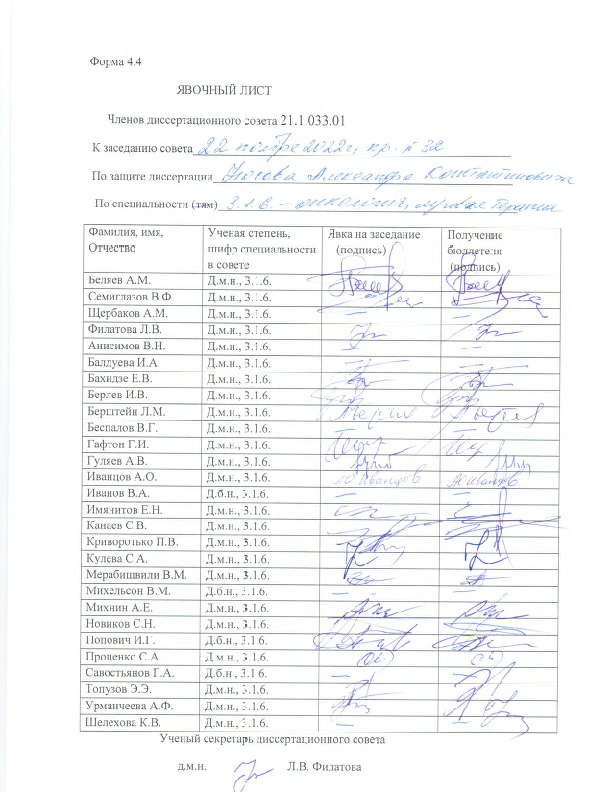 Форма 4.4
ЯВОЧНЫЙ ЛИСТ
Членов диссертационного совета 21.1.033.01
К заседанию совета 22 ноября 2022г, пр. № 32
По защите диссертации Александра Константиновича
По специальности (тям) 3.1.6. – онкология, лучевая терапия
Фамилия, имя, Отчество Ученая степень, шифр специальности в совете Явка на заседание (подпись) Получение бюллетеня (подпись)
Беляев А.М. Д.м.н., 3.1.6.
Семиглазов В.Ф. Д.м.н., 3.1.6.
Щербаков А.М. Д.м.н., 3.1.6. — —
Филатова Л.В. Д.м.н., 3.1.6.
Анисимов В.Н. Д.м.н., 3.1.6. — —
Балдуева И.А. Д.м.н., 3.1.6. — —
Бахидзе Е.В. Д.м.н., 3.1.6.
Берлев И.В. Д.м.н., 3.1.6.
Берштейн Л.М. Д.м.н., 3.1.6.
Беспалов В.Г. Д.м.н., 3.1.6. — —
Гафтон Г.И. Д.м.н., 3.1.6.
Гуляев А.В. Д.м.н., 3.1.6.
Иванцов А.О. Д.м.н., 3.1.6. Иванцов Иванцов
Иванов В.А. Д.б.н., 3.1.6. — —
Имянитов Е.Н. Д.м.н., 3.1.6.
Канаев С.В. Д.м.н., 3.1.6.
Криворотько П.В. Д.м.н., 3.1.6.
Кулева С.А. Д.м.н., 3.1.6.
Мерабишвили В.М. Д.м.н., 3.1.6.
Михельсон В.М. Д.б.н., 3.1.6. — —
Михнин А.Е. Д.м.н., 3.1.6.
Новиков С.Н. Д.м.н., 3.1.6.
Попович И.Г. Д.б.н., 3.1.6.
Проценко С.А. Д.м.н., 3.1.6.
Савостьянов Г.А. Д.б.н., 3.1.6. —
Топузов Э.Э. Д.м.н., 3.1.6.
Урманчеева А.Ф. Д.м.н., 3.1.6.
Шелехова К.В. Д.м.н., 3.1.6. —
Ученый секретарь диссертационного совета
д.м.н. Л.В. Филатова